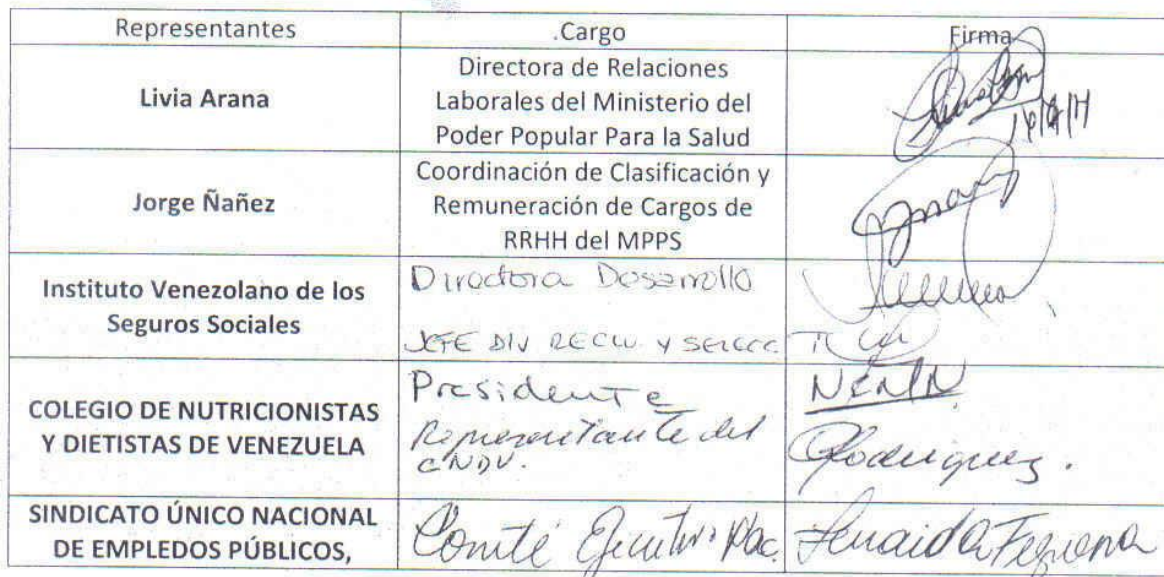 Representantes
.Cargo
Firma
Livia Arana
Directora de Relaciones
Laborales del Ministerio del
Poder Popular Para la Salud
Jorge Ñañez
Coordinación de Clasificación y
Remuneración de Cargos de
RRHH del MPPS
Instituto Venezolano de los
Seguros Sociales
Directora Desarrollo
JEFE DIV RECLU. Y SELECC
COLEGIO DE NUTRICIONISTAS
Y DIETISTAS DE VENEZUELA
Presidente
Representante del
CNDV.
Rodriguez.
SINDICATO ÚNICO NACIONAL
DE EMPLEDOS PÚBLICOS,
Comité Ejecutivo Nac.